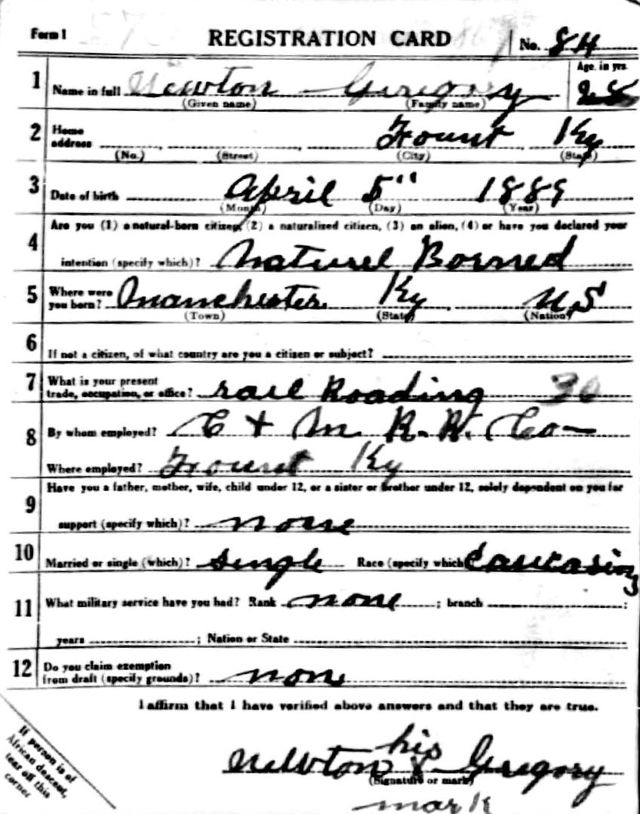 Form 1 REGISTRATION CARD No. 84
Age, in yrs.
1 Name in full Newton Gregory 28
(Given name) (Family name)
2 Home address Fount Ky
(No.) (Street) (City) (State)
3 Date of birth April 5" 1889
(Month) (Day) (Year)
4 Are you (1) a natural-born citizen, (2) a naturalized citizen, (3) an alien, (4) or have you declared your
intention (specify which)? Naturel Borned
5 Where were you born? Manchester Ky U.S
(Town) (State) (Nation)
6 If not a citizen, of what country are you a citizen or subject?
7 What is your present trade, occupation, or office? rail Roading 36
8 By whom employed? C + M R.R. Co
Where employed? Fount Ky
9 Have you a father, mother, wife, child under 12, or a sister or brother under 12, solely dependent on you for
support (specify which)? none
10 Married or single (which)? single Race (specify which)
11 What military service have you had? Rank none ; branch ;
years ; Nation or State
12 Do you claim exemption from draft (specify grounds)? non
I affirm that I have verified above answers and that they are true.
his
Newton X Gregory
(Signature or mark)
mark
If person is of
African descent,
tear off this
corner